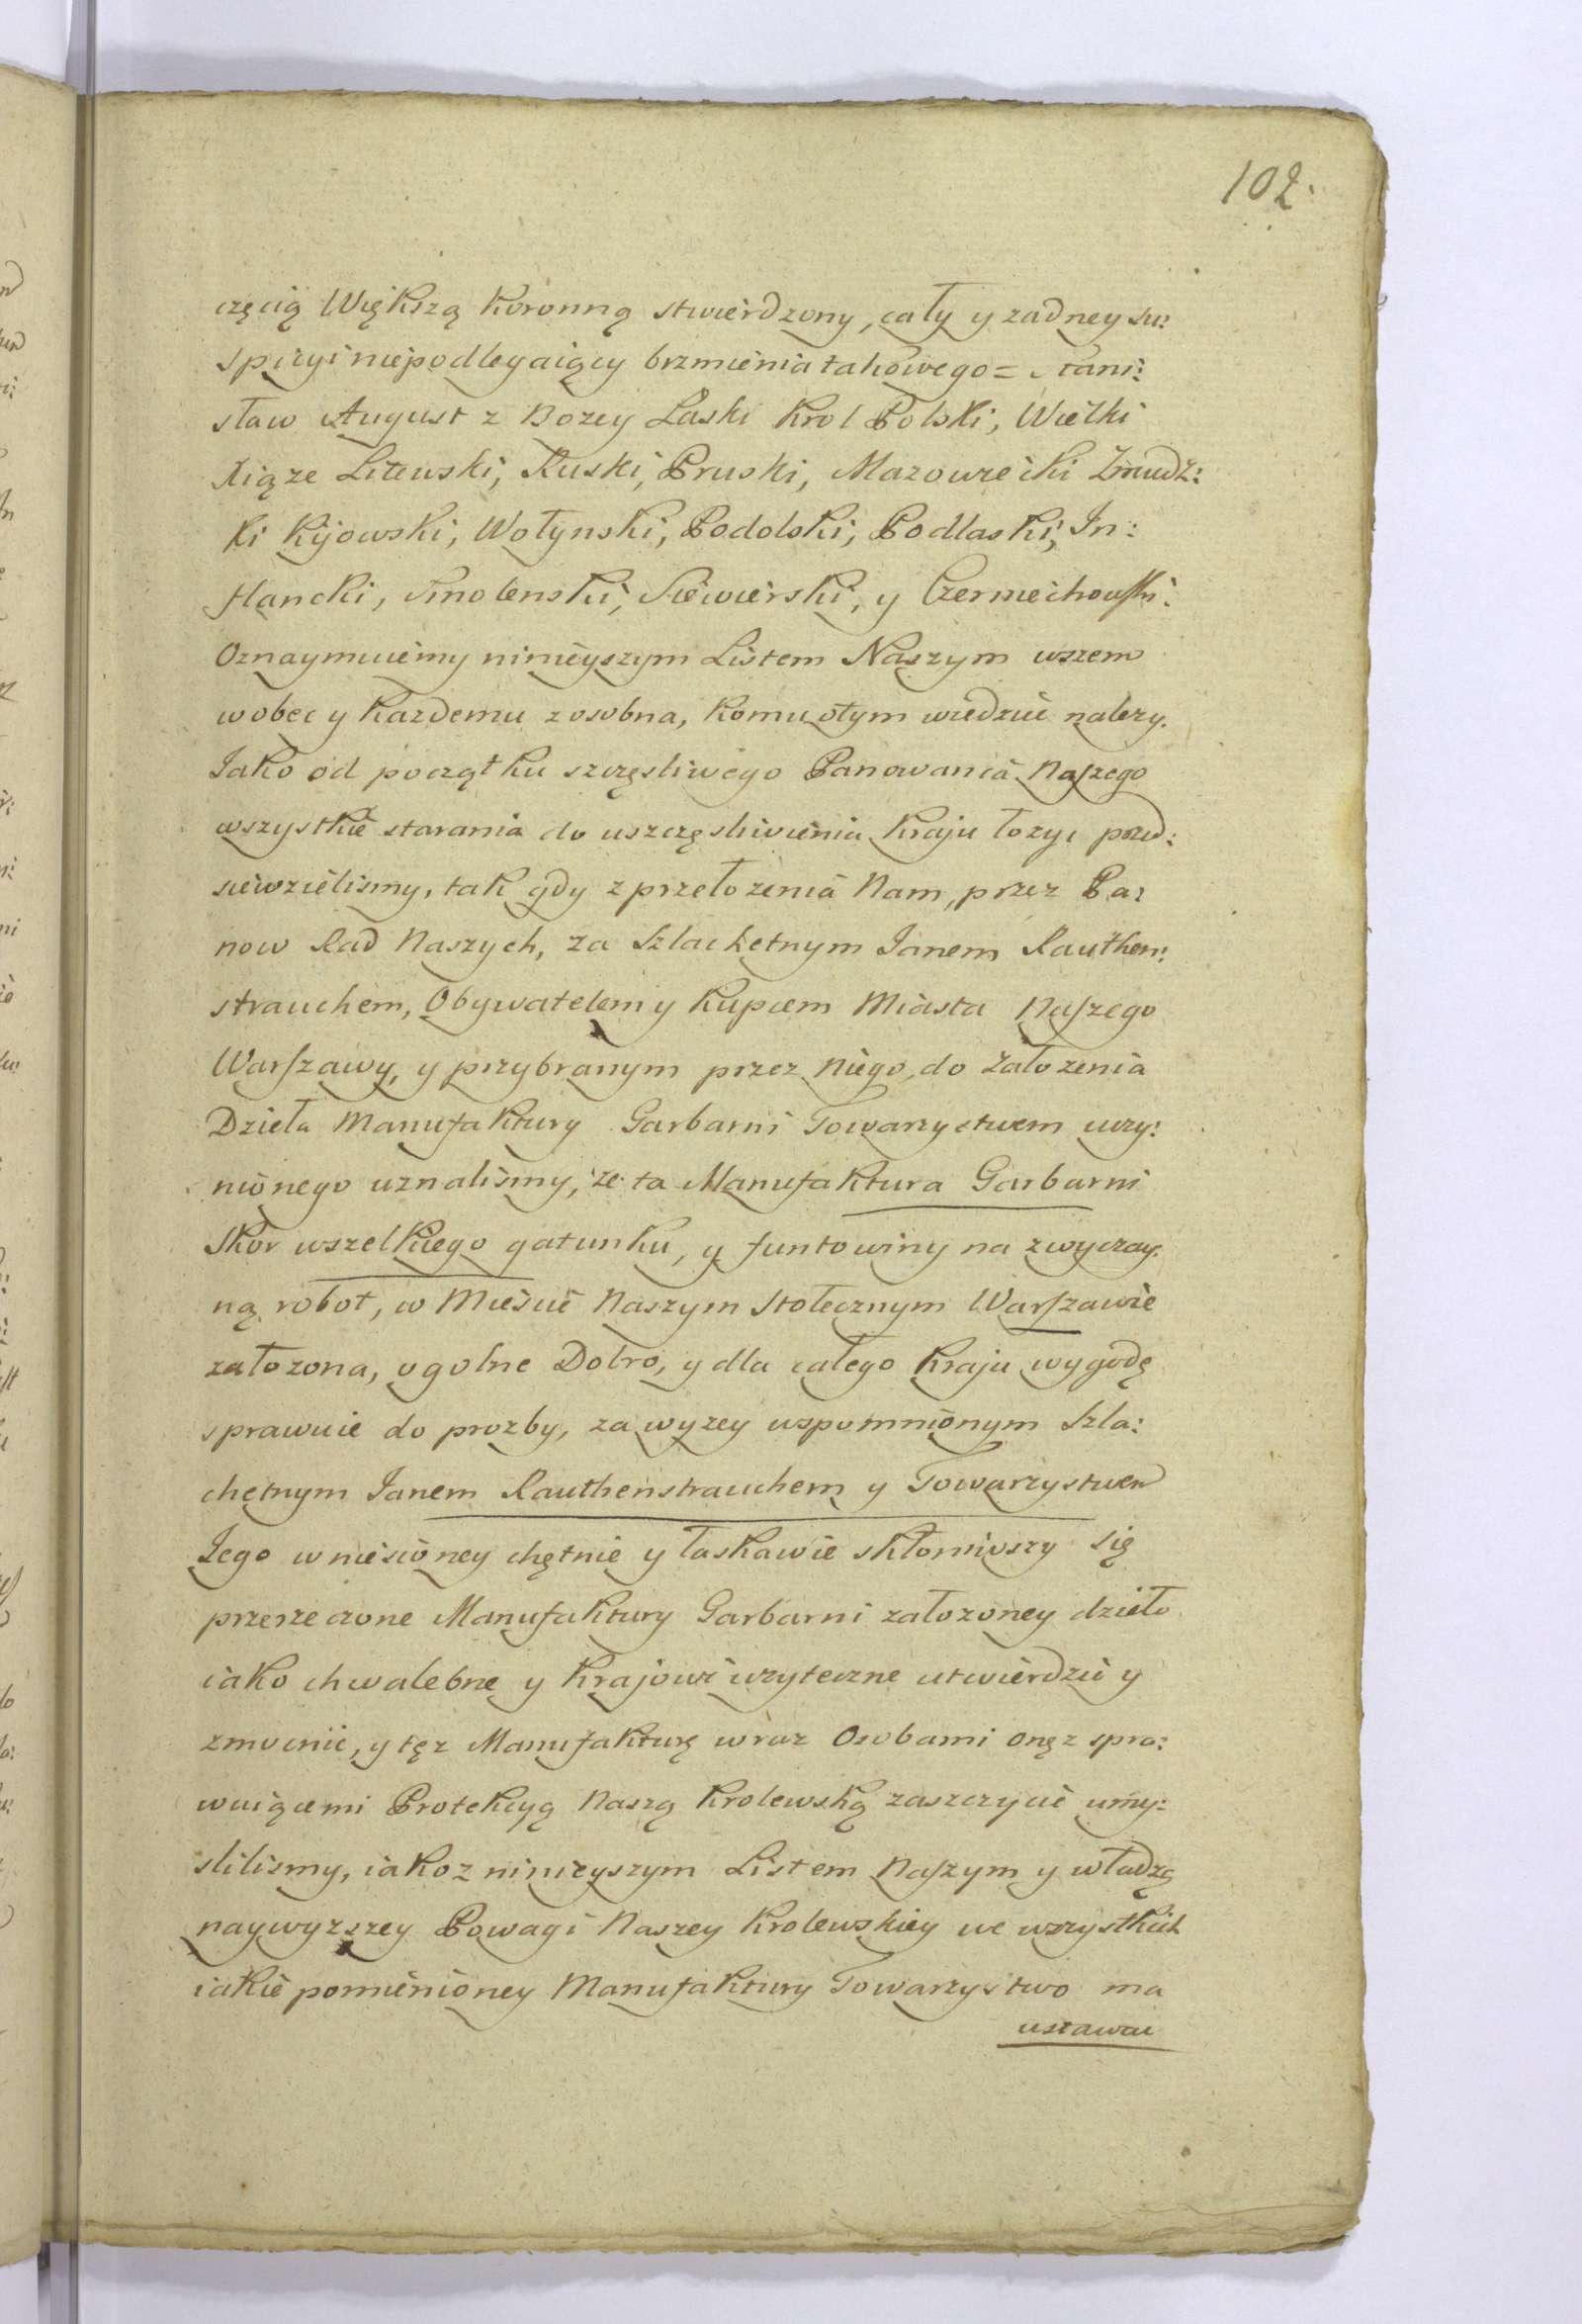 102.
częcią Większą Koronną stwierdzony, cały y zadney su:
spicyi niepodlegaiący brzmienia takowego = Stani:
sław August z Bozey Łaski Krol Polski, Wielki
Xiąze Litewski, Ruski, Pruski, Mazowiecki Zmudz:
ki Kijowski, Wołynski, Podolski, Podlaski, In:
flancki, Smolenski, Siewierski, y Czerniechowski.
Oznaymuiemy ninieyszym Listem Naszym wszem
wobec y kazdemu zosobna, komu otym wiedzić nalezy.
Jako od początku szczęsliwego Panowania Naszego
wszystkie starania do uszczęsliwienia Kraju łozyc przed:
siewzielismy, tak gdy z przełozenia Nam, przez Pa:
now Rad Naszych, za Szlachetnym Janem Rauthen:
strauchem, Obywatelem y Kupcem Miasta Naszego
Warszawy, y przybranym przez Niego, do Załozenia
Dzieła Manufaktury Garbarni Towarzystwem uczy:
nionego uznalismy, ze ta Manufaktura Garbarni
Skor wszelkiego gatunku, y funtowiny na zwyczay:
ną robot, w Miescie Naszym Stołecznym Warszawie
załozona, ogolne Dobro, y dla całego Kraju wygodę
sprawuie do prozby, za wyzey wspomnionym Szla:
chetnym Janem Rauthenstrauchem y Towarzystwem
Jego wniesioney chętnie y łaskawie skłoniwszy się
przerzeczone Manufaktury Garbarni załozoney dzieło
iako chwalebne y Krajowi uzyteczne utwierdzić y
zmocnić, y tęz Manufakturę wraz Osobami onęz spra:
wuiącemi Protekcyą Naszą Krolewską zaszczycić umy:
slilismy, iakoz ninieyszym Listem Naszym y władzą
naywyzszey Powagi Naszey Krolewskiey we wszystkich
iakie pomienioney Manufaktury Towarzystwo ma
ustawau